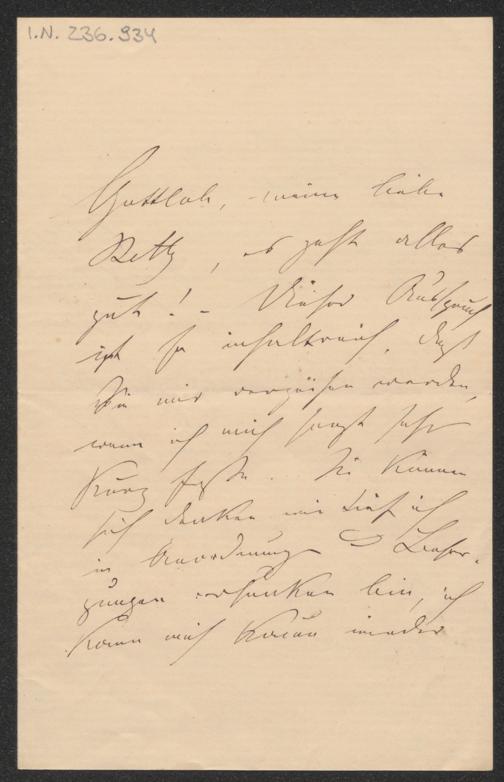 I.N. 236.934
Gottlob, meine liebe
Betty, es geht alles
gut! – Dieser Ausspruch
ist so inhaltreich, daß
Sie mir verzeihen werden,
wenn ich mich sonst sehr
kurz fasse. Sie können
sich denken wie tief ich
in Anordnungen &
versunken bin, ich
kann mich kaum wieder